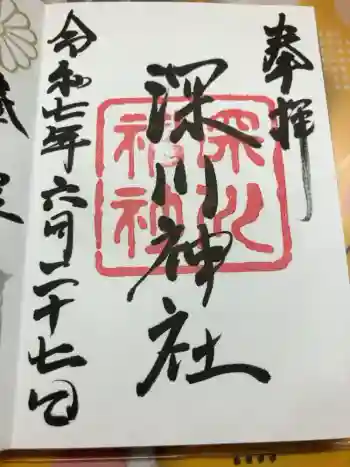 奉拝
深川神社
深川神社
令和七年六月二十七日